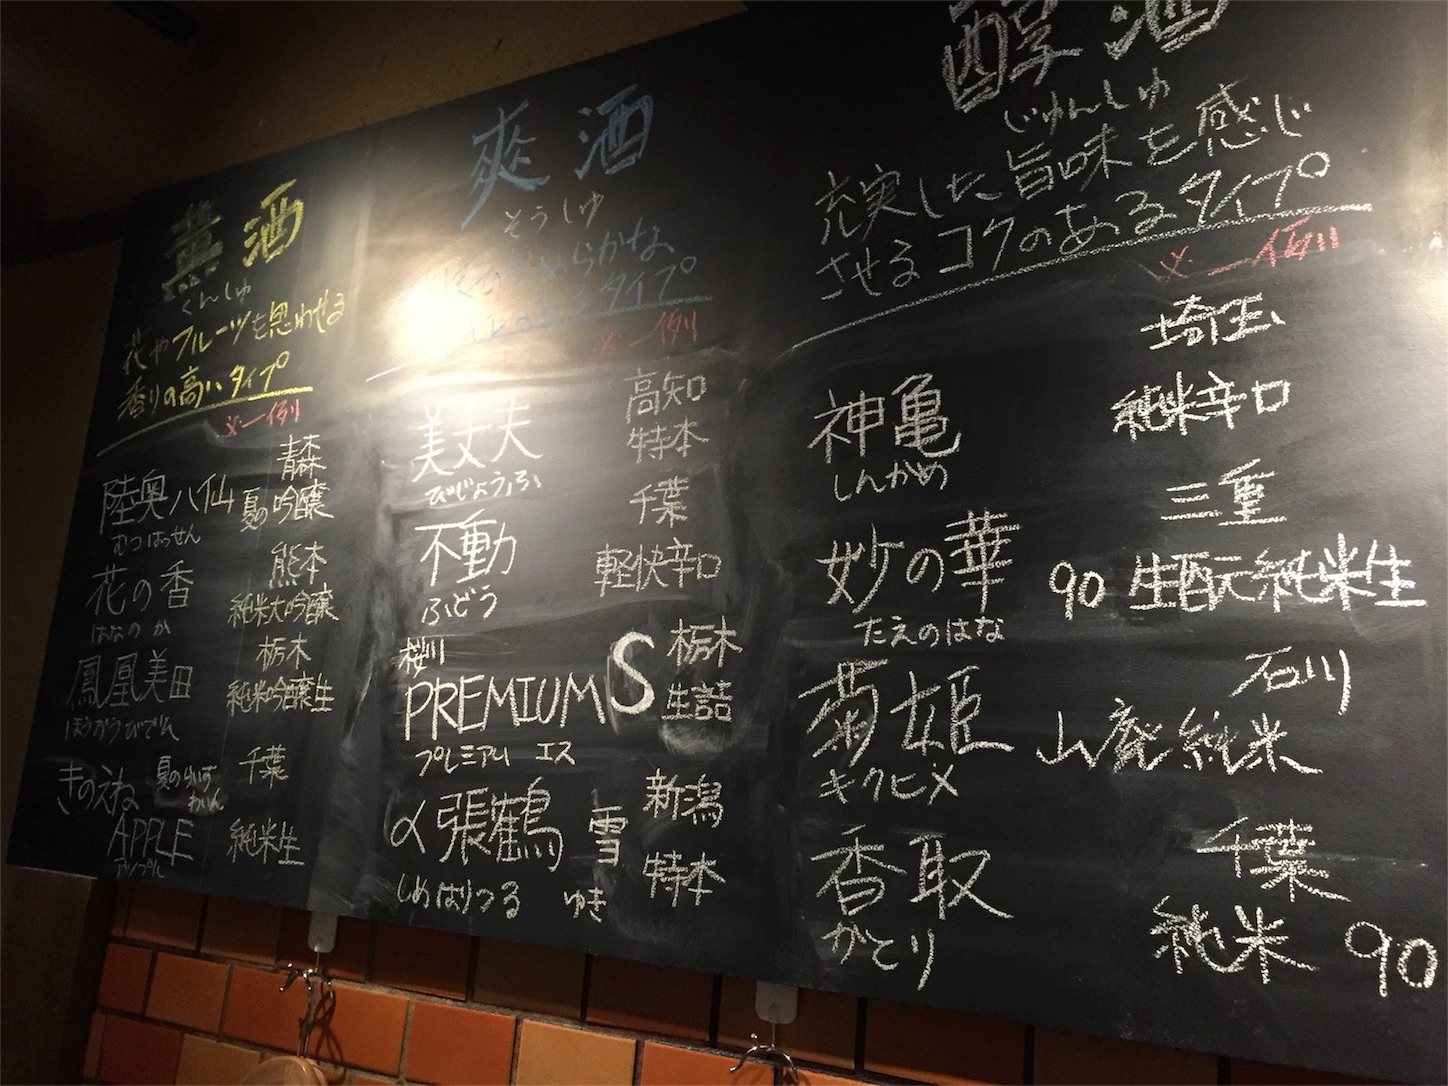 薫酒
くんしゅ
花やフルーツを思わせる
香りの高いタイプ
※一例
青森
陸奥八仙 夏の吟醸
むつはっせん
熊本
花の香 純米大吟醸
はなのか
栃木
鳳凰美田 純米吟醸生
ほうおうびでん
千葉
きのえね 夏の
APPLE 純米生
アップル
爽酒
そうしゅ
らかな
タイプ
※一例
高知
美丈夫 特本
びじょうふ
千葉
不動 軽快辛口
ふどう
桜川 栃木
PREMIUM S 生詰
プレミアム エス
新潟
〆張鶴 雪 特本
しめはりつる ゆき
醇酒
じゅんしゅ
充実した旨味を感じ
させるコクのあるタイプ
※一例
埼玉
神亀 純米辛口
しんかめ
三重
妙の華 90 生酛純米生
たえのはな
石川
菊姫 山廃純米
キクヒメ
千葉
香取 純米90
かとり